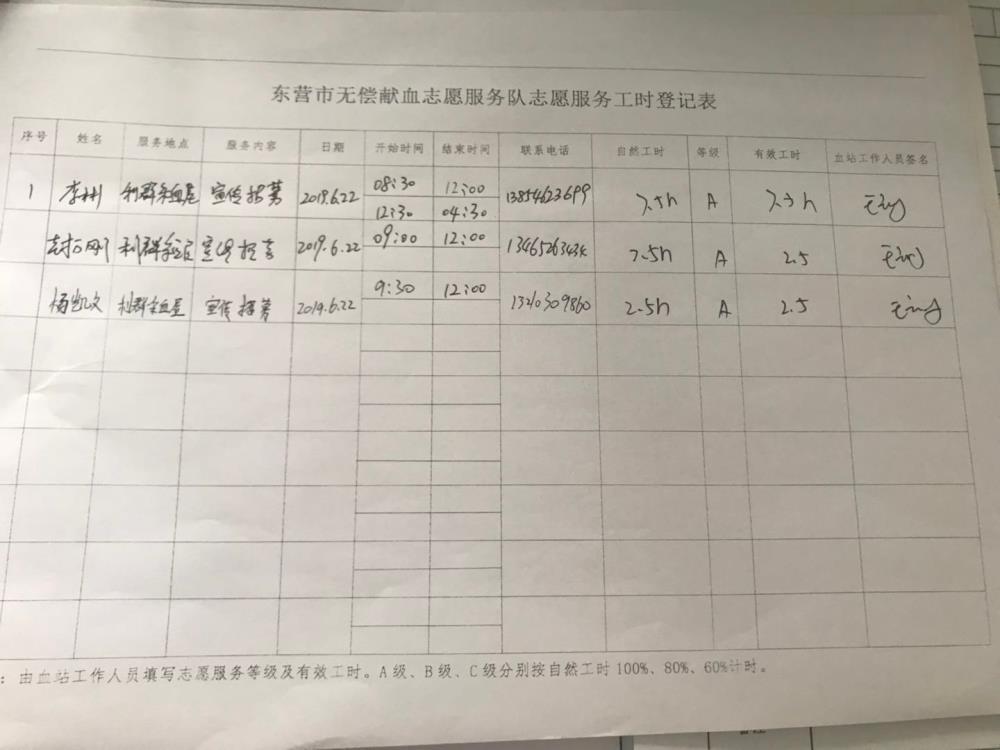 东营市无偿献血志愿服务队志愿服务工时登记表
序号 姓名 服务地点 服务内容 日期 开始时间 结束时间 联系电话 自然工时 等级 有效工时 血站工作人员签名
1 李彬 利群采血屋 宣传招募 2019.6.22 08:30 12:00 13854623699 7.5h A 7.5h
12:30 04:30
利群采血屋 宣传招募 2019.6.22 09:00 12:00 2.5h A 2.5
杨凯文 利群采血屋 宣传招募 2019.6.22 9:30 12:00 13210309860 2.5h A 2.5
：由血站工作人员填写志愿服务等级及有效工时。A级、B级、C级分别按自然工时100%、80%、60%计时。